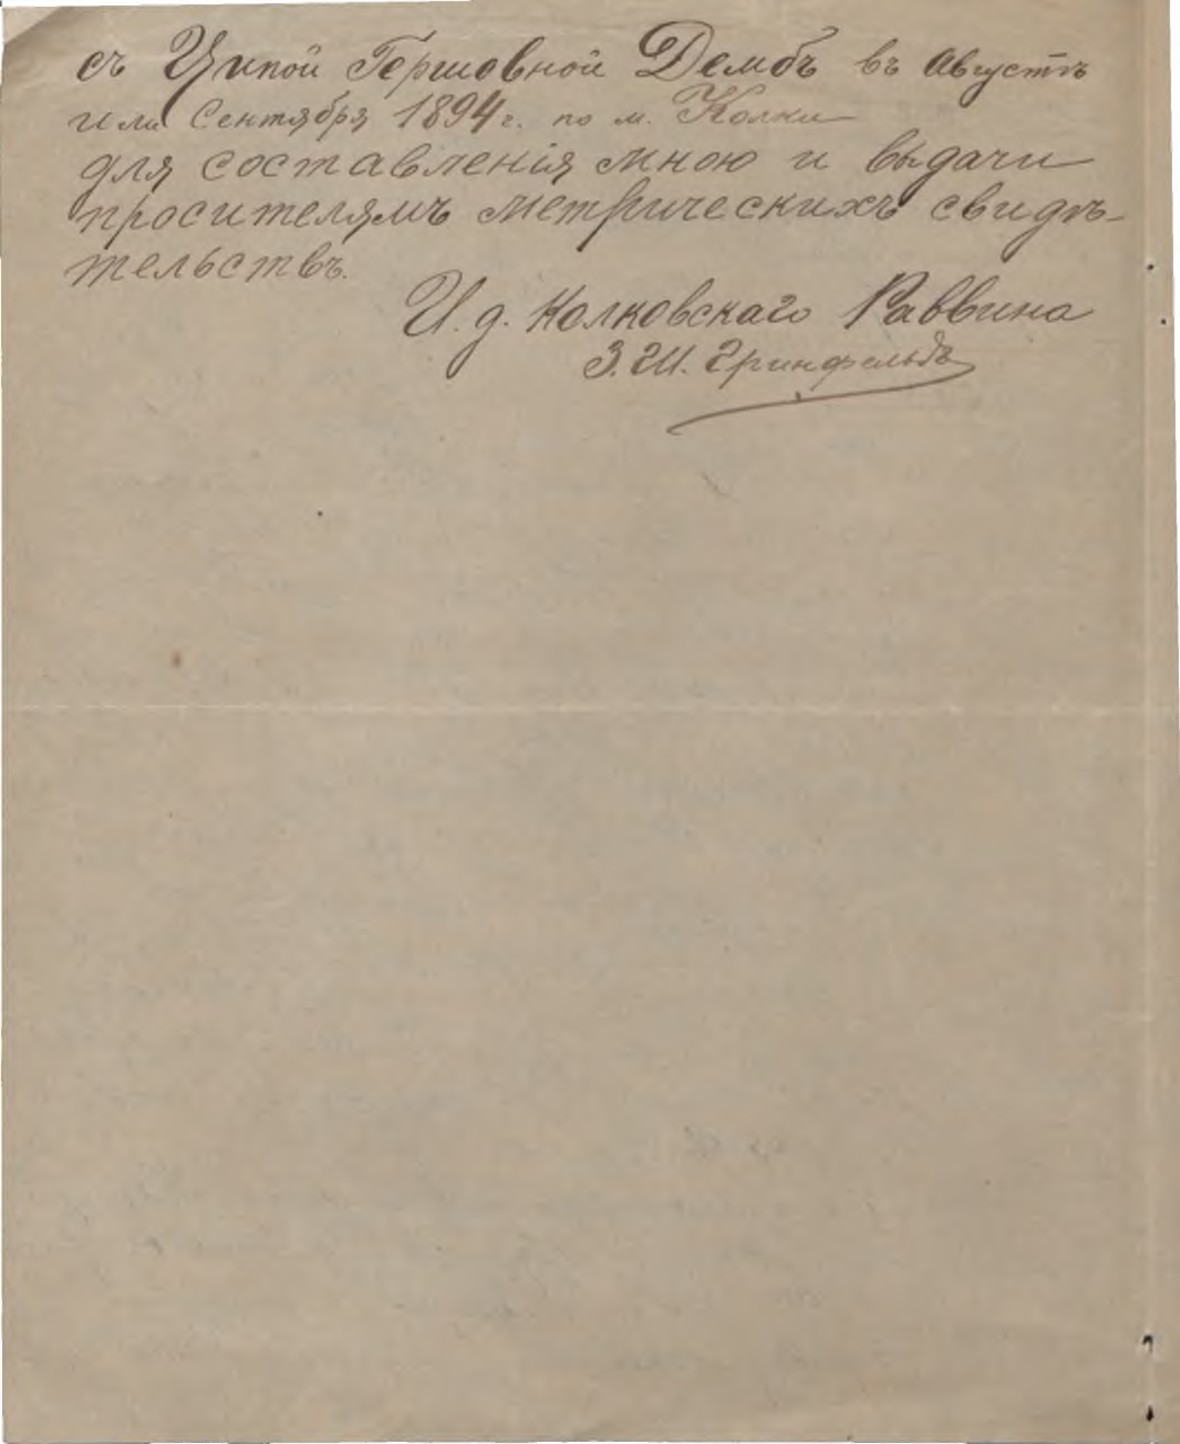 съ Ципой Гершовной Дембъ въ Августѣ
или Сентября 1894 г. по м. Колки
для составленія мною и выдачи
просителямъ метрическихъ свидѣ-
тельствъ.
И. д. Колковскаго Раввина
З. Ш. Гринфельдъ